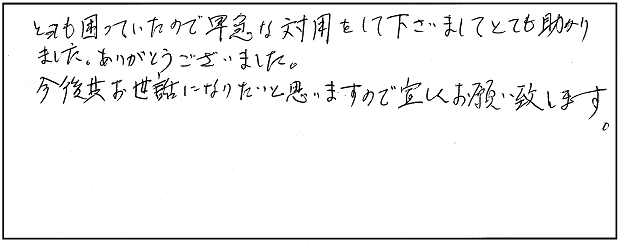 とても困っていたので早急な対用をして下さいましてとても助かり
ました。ありがとうございました。
今後共お世話になりたいと思いますので宜しくお願い致します。